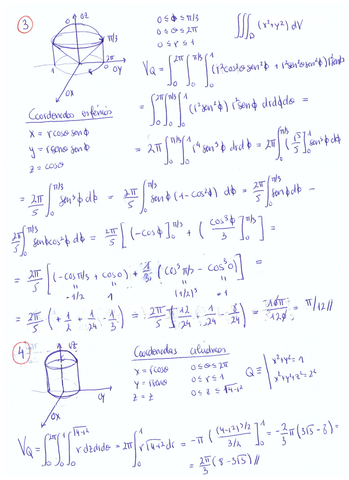 3
0 ≤ ϕ ≤ π/3
0 ≤ θ ≤ 2π
0 ≤ r ≤ 1
∭_D (x²+y²) dV
OZ
π/3
2π
OY
1
OX
V_Q = ∫₀^{2π} ∫₀^{π/3} ∫₀^1 (r²cos²θ sen²ϕ + r²sen²θ sen²ϕ) r²senϕ
Coordenadas esféricas
x = r cosθ senϕ
y = r senθ senϕ
z = cosθ
= ∫₀^{2π} ∫₀^{π/3} ∫₀^1 (r²sen²ϕ) r²senϕ dr dϕ dθ =
= 2π ∫₀^{π/3} ∫₀^1 r⁴ sen³ϕ dr dϕ = 2π ∫₀^{π/3} [r⁵/5]₀^1 sen³ϕ dϕ
= 2π/5 ∫₀^{π/3} sen³ϕ dϕ = 2π/5 ∫₀^{π/3} senϕ (1-cos²ϕ) dϕ = 2π/5 ∫₀^{π/3} senϕ dϕ -
2π/5 ∫₀^{π/3} senϕ cos²ϕ dϕ = 2π/5 [ [-cosϕ]₀^{π/3} + [cos³ϕ/3]₀^{π/3} ] =
= 2π/5 [ (-cos π/3 + cos 0) + 1/3 (cos³ π/3 - cos³ 0) ] =
-1/2 1 (1/2)³ 1
= 2π/5 ( + 1/2 + 1/24 - 1/3 ) = 2π/5 [ 12/24 + 1/24 - 8/24 ] = 10π/120 = π/12 //
4
OZ
OY
OX
Coordenadas cilíndricas
x = r cosθ
y = r senθ
z = z
0 ≤ θ ≤ 2π
0 ≤ r ≤ 1
0 ≤ z ≤ √(4-r²)
Q ≡ { x²+y² = 1
x²+y²+z² = 2²
V_Q = ∫₀^{2π} ∫₀^1 ∫₀^{√(4-r²)} r dz dr dθ = 2π ∫₀^1 r √(4-r²) dr = -π [ (4-r²)^{3/2} / 3/2 ]₀^1 = -2/3 π (3√3 - 8) =
= 2π/3 (8 - 3√3) //